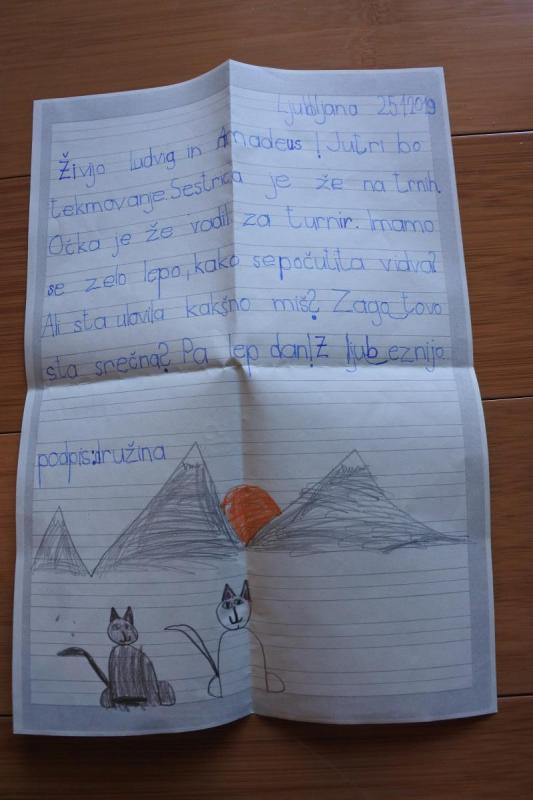 Ljubljana 25.1.2019
Živjo ludvig in Amadeus! Jutri bo
tekmovanje. Sestrica je že na trnih.
Očka je že vadil za turnir. Imamo
se zelo lepo, kako se počutita vidva?
Ali sta ulovila kakšno miš? Zagotovo
sta srečna? Pa lep dan! Z ljubeznijo
podpis: družina